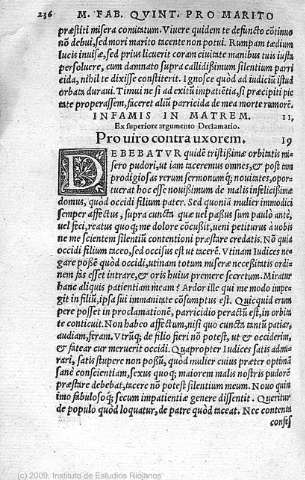 236 M. FAB. QVINT. PRO MARITO
præstiti misera comitatum. Viuere quidem te defuncto cõtinuo
nõ debui, sed mori marito tacente non potui. Rumpam tædium
lucis inuisæ, sed prius licuerit coram ciuitate manibus tuis iusta
persoluere, cum damnato supra callidissimum silentium parri
cida, nihil te dixisse constiterit. Ignosce quòd ad iudiciũ istud
orbata duraui. Timui ne si ad exitũ impatiẽtia, si præcipiti pie
tate properassem, faceret aliũ parricida de mea morte rumorẽ.
INFAMIS IN MATREM. 11,
Ex superiore argumento Declamatio.
Pro uiro contra uxorem. 19
DEBEBATVR quidẽ tristissimæ orbitatis mi
sero pudori, ut iam taceremus omnes, & post tam
prodigiosas rerum sermonumq; nouitates, opor
tuerat hoc esse nouissimum de malis infelicissimæ
domus, quòd occidit filium pater. Sed quoniã mulier immodici
semper affectus, supra cunctа quæ uel passus sum paulò antè,
uel feci, reatus quoq; me dolore cõcussit, ueni petiturus à uobis
ne me scientem silentiũ contentioni præstare credatis. Nõ quia
occidi filium taceo, sed occisus est ut tacerẽ. Vtinam Iudices ne
gare possem quòd occidi, utinam totum misera necessitatis ordi
nem fas esset intrare, & oris huius premere secretum. Miratur
hanc aliquis patientiam meam? Ardor ille qui me modo impe-
git in filiũ, ipsa sui immanitate cõsumptus est. Quicquid erum
pere posset in proclamationẽ, parricidio peractũ est, in orbita
te conticuit. Non habeo affectum, nisi quo cunctа tantũ patiar,
audiam, feram. Vtrũq; de filio fieri nõ potest, ut & occiderim,
& fatear cur meruerit occidi. Quapropter Iudices satis admi-
rari, satis stupere non possũ, quòd mulier cuius præter opiniõ
sanã conscientiam, sexus quoq; maiorem malis nostris pudorẽ
præstare debebat, tacere nõ potest silentium meum. Nouo quin
imo fabulosoq; secum impatientiæ genere dissentit. Queritur
de populo quòd loquatur, de patre quòd taceat. Nec contenta
consis
(c) 2009, Instituto de Estudios Riojanos